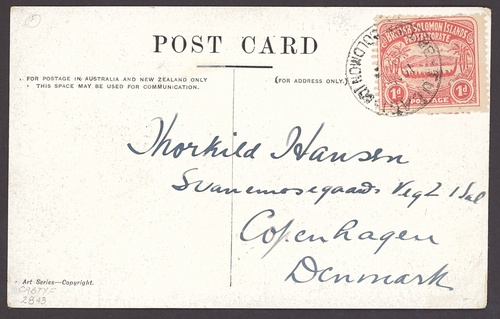 POST CARD
BRITISH SOLOMON ISLANDS
PROTECTORATE
1d 1d
POSTAGE
FOR POSTAGE IN AUSTRALIA AND NEW ZEALAND ONLY
THIS SPACE MAY BE USED FOR COMMUNICATION.
(FOR ADDRESS ONLY.)
Thorkild Hansen
Svanemosegaards Veg 2 1 Sal
Copenhagen
Denmark
Art Series—Copyright.
2843